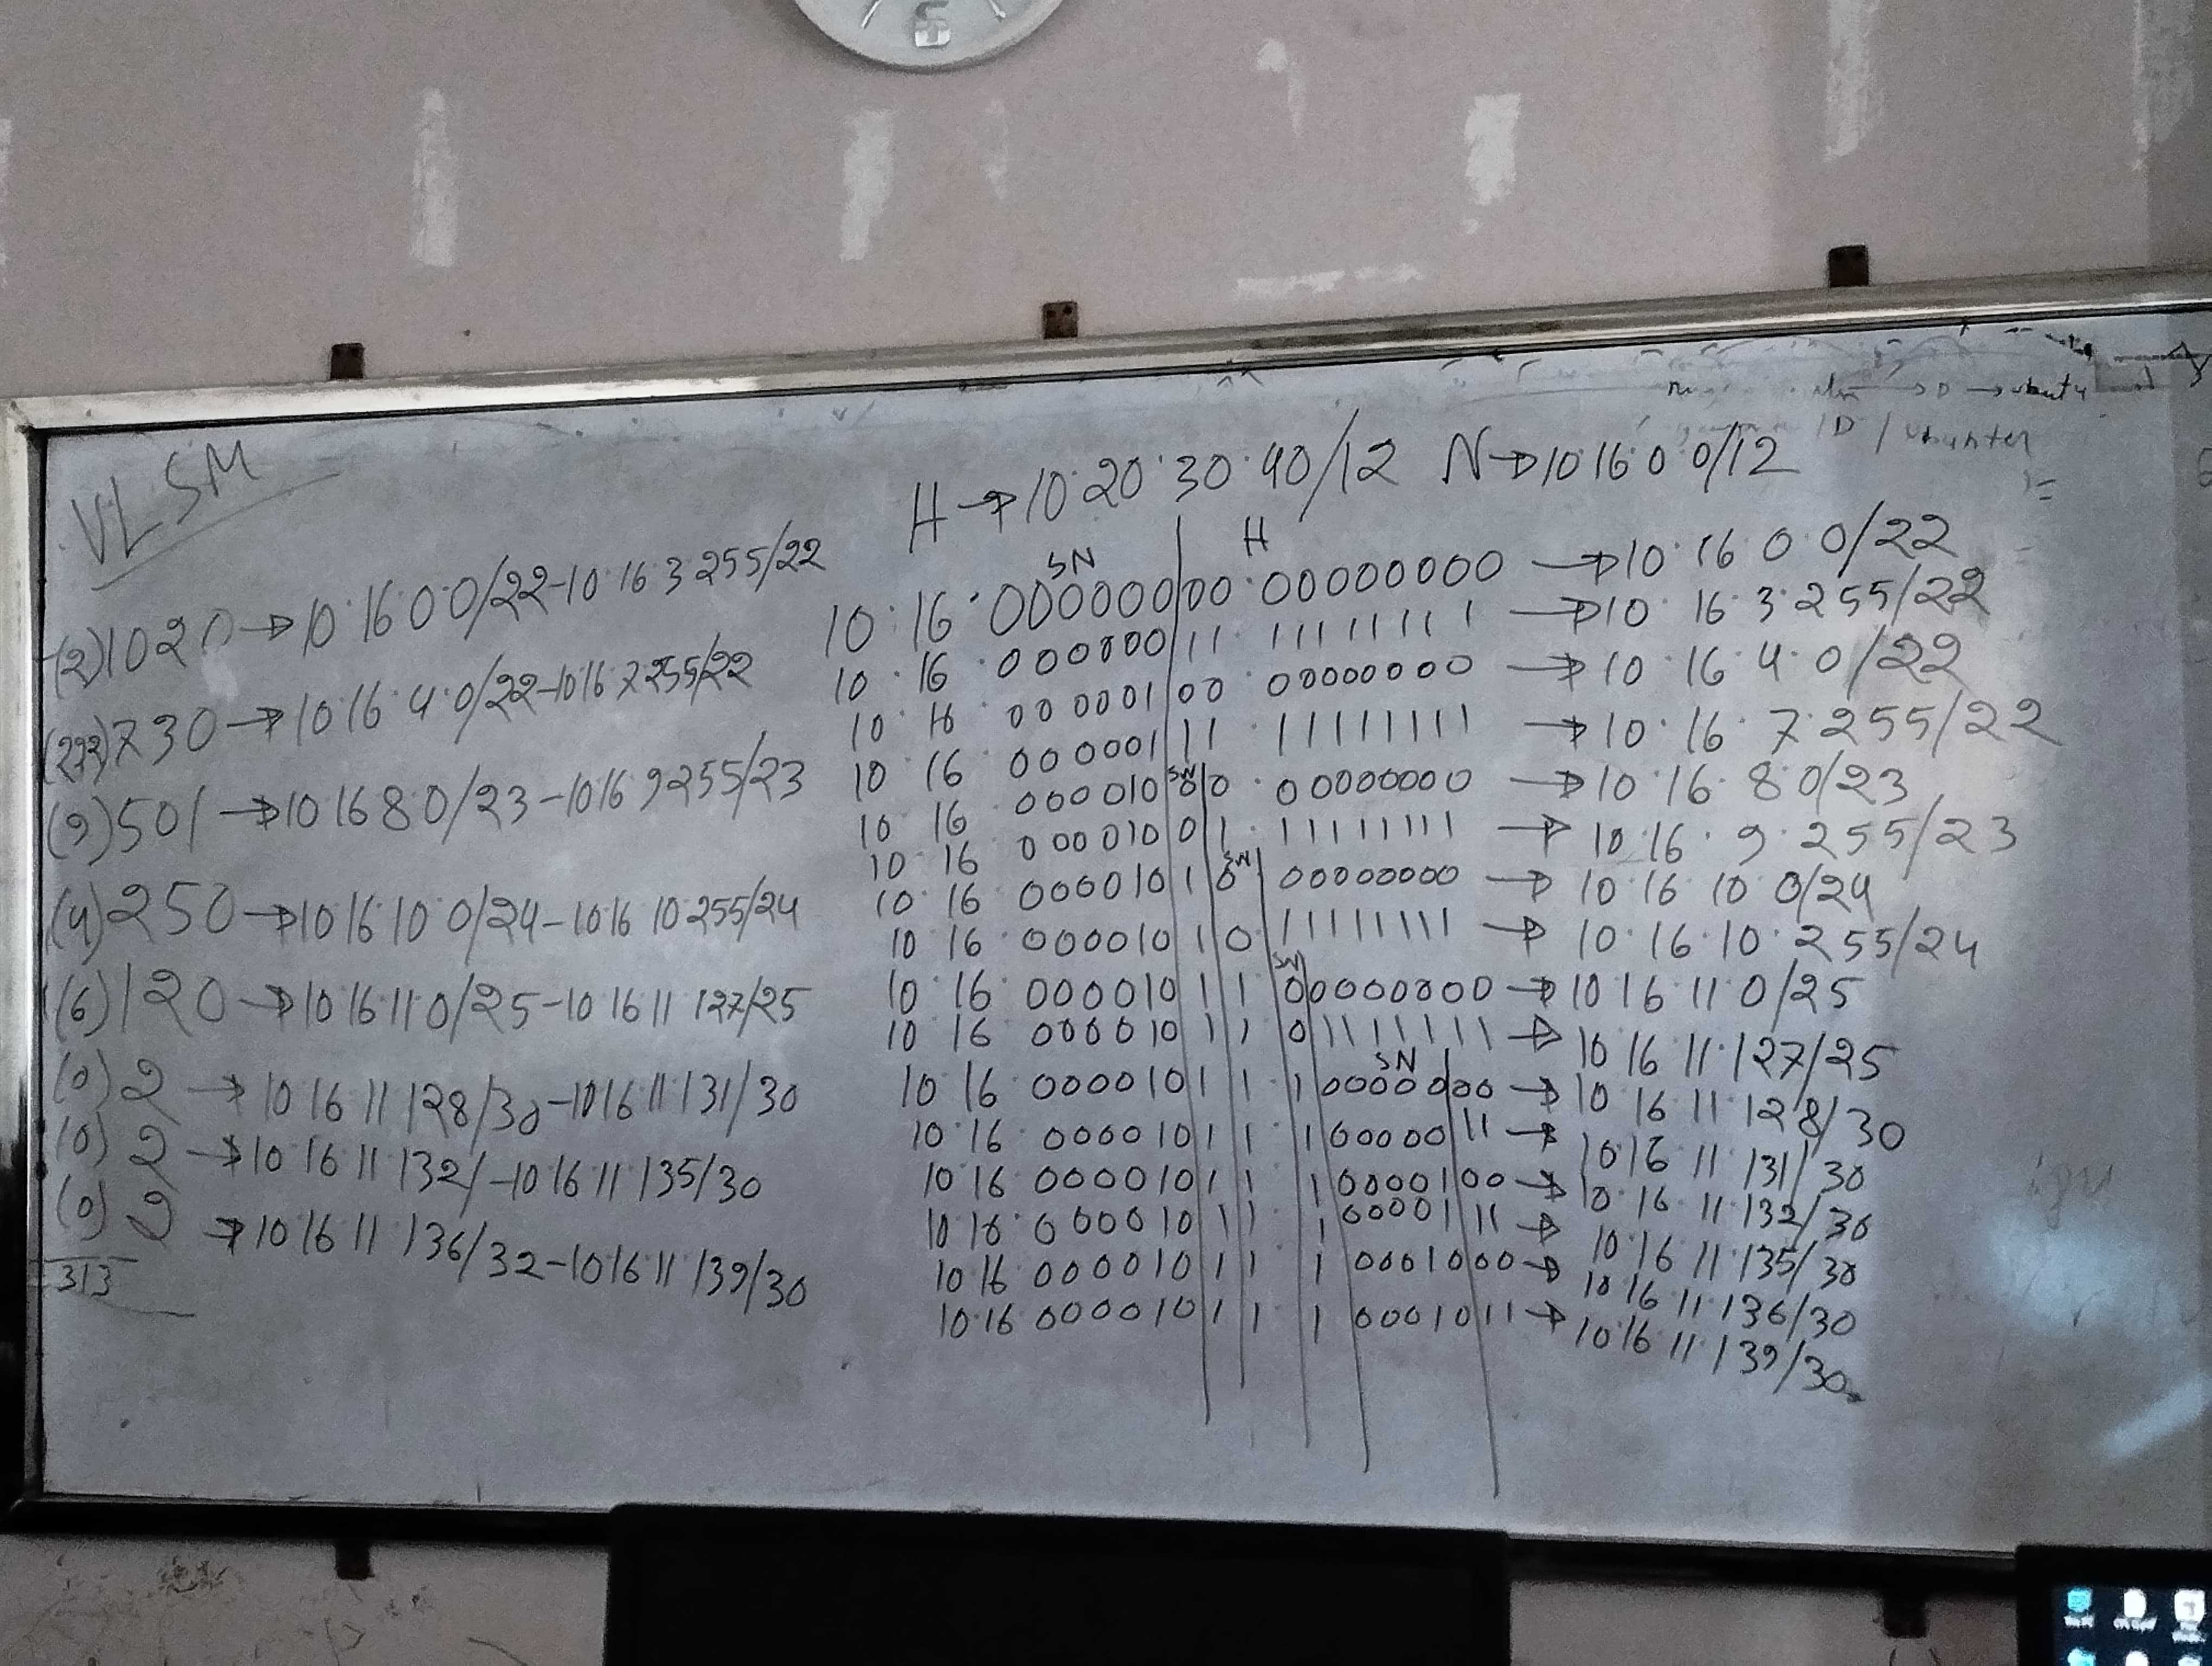 VLSM
H→10.20.30.40/12 N→10.16.0.0/12
(2)1020→10.16.0.0/22-10.16.3.255/22
(292)730→10.16.4.0/22-10.16.7.255/22
(9)501→10.16.8.0/23-10.16.9.255/23
(4)250→10.16.10.0/24-10.16.10.255/24
(6)120→10.16.11.0/25-10.16.11.127/25
(0)2→10.16.11.128/30-10.16.11.131/30
(0)2→10.16.11.132/-10.16.11.135/30
(0)2→10.16.11.136/32-10.16.11.139/30
313
SN H
10.16.000000|00.00000000→10.16.0.0/22
10.16.000000|11.11111111→10.16.3.255/22
10.16.000001|00.00000000→10.16.4.0/22
10.16.000001|11.11111111→10.16.7.255/22
SN
10.16.000010|0|0.00000000→10.16.8.0/23
10.16.000010|0|1.11111111→10.16.9.255/23
SN
10.16.000010|1|0|00000000→10.16.10.0/24
10.16.000010|1|0|11111111→10.16.10.255/24
SN
10.16.000010|1|1|0|0000000→10.16.11.0/25
10.16.000010|1|1|0|1111111→10.16.11.127/25
SN
10.16.000010|1|1|1|00000|00→10.16.11.128/30
10.16.000010|1|1|1|00000|11→10.16.11.131/30
10.16.000010|1|1|1|00001|00→10.16.11.132/30
10.16.000010|1|1|1|00001|11→10.16.11.135/30
10.16.000010|1|1|1|00010|00→10.16.11.136/30
10.16.000010|1|1|1|00010|11→10.16.11.139/30